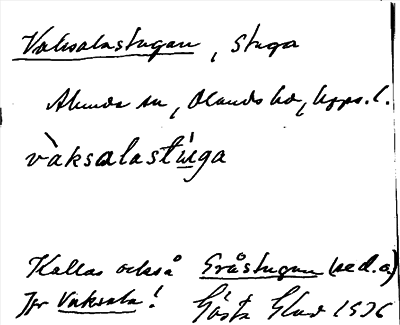 Vaksalastugan, stuga
Alunda sn, Olands hd, Upps. l.
vàksalastú̱ga
Kallas också Gråstugan (se d.o)
Jfr Vaksala! Gösta Glad 1926